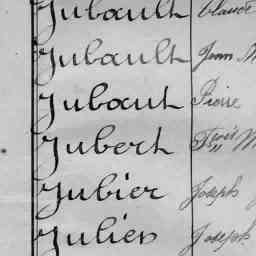 Jubault Claude
Jubault Jean M
Jubaut Pierre
Jubert
Jubier Joseph J
Julien Joseph